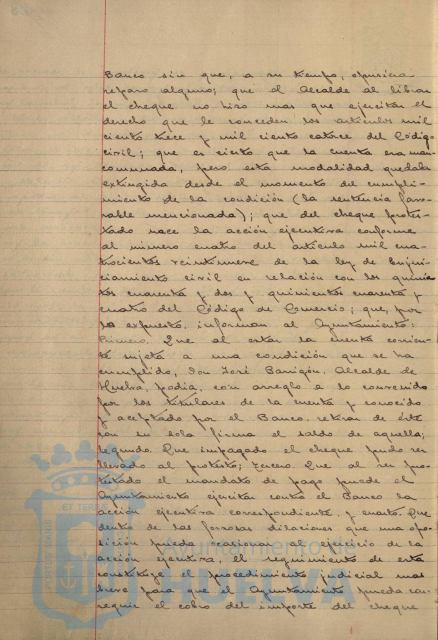 Banco sin que, a su tiempo, opusiera
reparo alguno; que el Alcalde al librar
el cheque no hizo mas que ejercitar el
derecho que le conceden los artículos mil
ciento trece y mil ciento catorce del Código
civil; que es cierto que la cuenta era man-
comunada, pero esta modalidad quedaba
extinguida desde el momento del cumpli-
miento de la condición (la sentencia favo-
rable mencionada); que del cheque protes-
tado nace la acción ejecutiva conforme
al número cuatro del artículo mil cua-
trocientos veintinueve de la ley de Enjui-
ciamiento civil en relación con los quinien-
tos cuarenta y dos y quinientos cuarenta y
cuatro del Código de Comercio; que, por
lo expuesto, informan al Ayuntamiento:
Primero. Que al estar la cuenta corrien-
te sujeta a una condición que se ha
cumplido, Don José Barrigón, Alcalde de
Huelva, podía, con arreglo a lo convenido
por los titulares de la cuenta y conocido
y aceptado por el Banco, retirar de éste
con su sola firma el saldo de aquella;
segundo. Que impagado el cheque pudo ser
llevado al protesto; tercero. Que al ser pro-
testado el mandato de pago puede el
Ayuntamiento ejercitar contra el Banco la
acción ejecutiva correspondiente, y cuarto. Que
dentro de las forzosas dilaciones que una opo-
sición pueda ocasionar al ejercicio de la
acción ejecutiva, el seguimiento de esta
constituye el procedimiento judicial mas
breve para que el Ayuntamiento pueda con-
seguir el cobro del importe del cheque
Ayuntamiento de
HUELVA